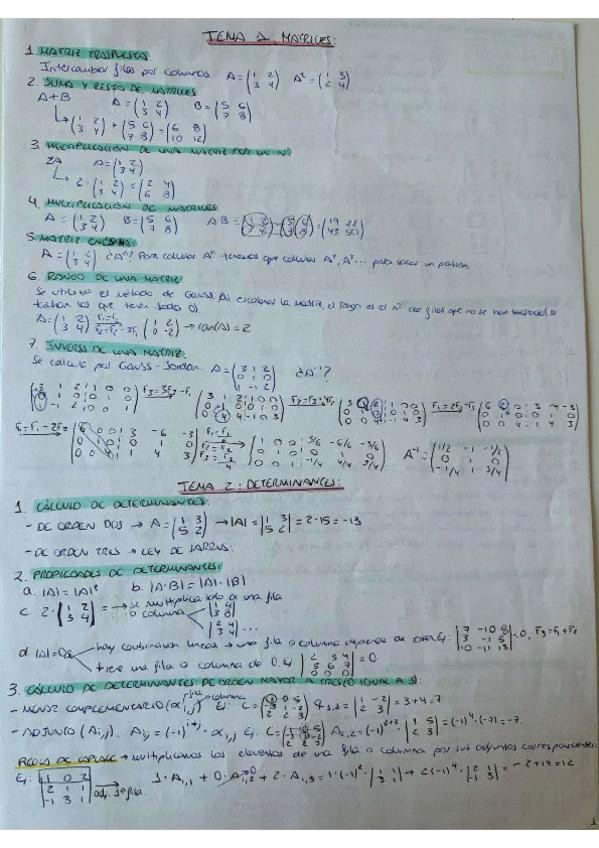 TEMA 1: MATRICES:
1. MATRIZ TRASPUESTA:
Intercambiar filas por columnas. A = (1 2 / 3 4) Aᵗ = (1 3 / 2 4)
2. SUMA Y RESTA DE MATRICES
A+B A = (1 2 / 3 4) B = (5 6 / 7 8)
↳ (1 2 / 3 4) + (5 6 / 7 8) = (6 8 / 10 12)
3. MULTIPLICACIÓN DE UNA MATRIZ POR UN Nº
2A A = (1 2 / 3 4)
↳ 2 · (1 2 / 3 4) = (2 4 / 6 8)
4. MULTIPLICACIÓN DE MATRICES
A = (1 2 / 3 4) B = (5 6 / 7 8) A·B = (1 2 / 3 4) · (5 6 / 7 8) = (19 22 / 43 50)
5. MATRIZ
A = (1 2 / 3 4) ¿Aⁿ? Para calcular Aⁿ tenemos que calcular A², A³... para sacar un patrón.
6. RANGO DE UNA MATRIZ
Se utiliza el método de Gauss. Al escalonar la matriz, el rango es el nº de filas que no se han tachado (se
tachan las que tienen todo 0).
A = (1 2 / 3 4) F₂ = F₂ - 3F₁ (1 2 / 0 -2) → ran(A) = 2
7. INVERSA DE UNA MATRIZ.
Se calcula por Gauss-Jordan. A = (3 1 2 / 0 1 0 / 1 -1 2) ¿A⁻¹?
(3 1 2 | 1 0 0 / 0 1 0 | 0 1 0 / 1 -1 2 | 0 0 1) F₃ = 3F₃ - F₁ (3 1 2 | 1 0 0 / 0 1 0 | 0 1 0 / 0 -4 4 | -1 0 3) F₃ = F₃ + 4F₂ (3 1 2 | 1 0 0 / 0 1 0 | 0 1 0 / 0 0 4 | -1 4 3) F₁ = 2F₁ - F₃
A⁻¹ = (1/2 -1 -1/2 / 0 1 0 / -1/4 1 3/4)
TEMA 2: DETERMINANTES:
1. CÁLCULO DE DETERMINANTES:
- DE ORDEN DOS → A = (1 3 / 5 2) → |A| = |1 3 / 5 2| = 2 - 15 = -13
- DE ORDEN TRES → LEY DE SARRUS.
2. PROPIEDADES DE DETERMINANTES:
a. |A| = |A|ᵗ b. |A·B| = |A|·|B|
c. 2 · |1 2 / 3 4| = → se multiplica solo a una fila
o columna
d. |A| = 0 si hay combinación lineal → una fila o columna depende de otra. Ej: |7 -10 8 / 3 -1 5 / 10 -11 13| = 0, F₃ = F₁ + F₂
tiene una fila o columna de 0. Ej
3. CÁLCULO DE DETERMINANTES DE ORDEN MAYOR A TRES (O IGUAL A 3):
- MENOR COMPLEMENTARIO (αi,j) fila columna Ej: C =
- ADJUNTO (Ai,j). Ai,j = (-1)ⁱ⁺ʲ · αi,j Ej.
REGLA DE LAPLACE → multiplicamos los elementos de una fila o columna por sus adjuntos correspondientes:
Ej: |1 0 2 / 2 1 1 / -1 3 1| adj. 1ª fila. 1·A₁,₁ + 0·A₁,₂ + 2·A₁,₃ = 1·(-1)² · |1 1 / 3 1| + 2(-1)⁴ · |2 1 / -1 3| = -2 + 14 = 12
1